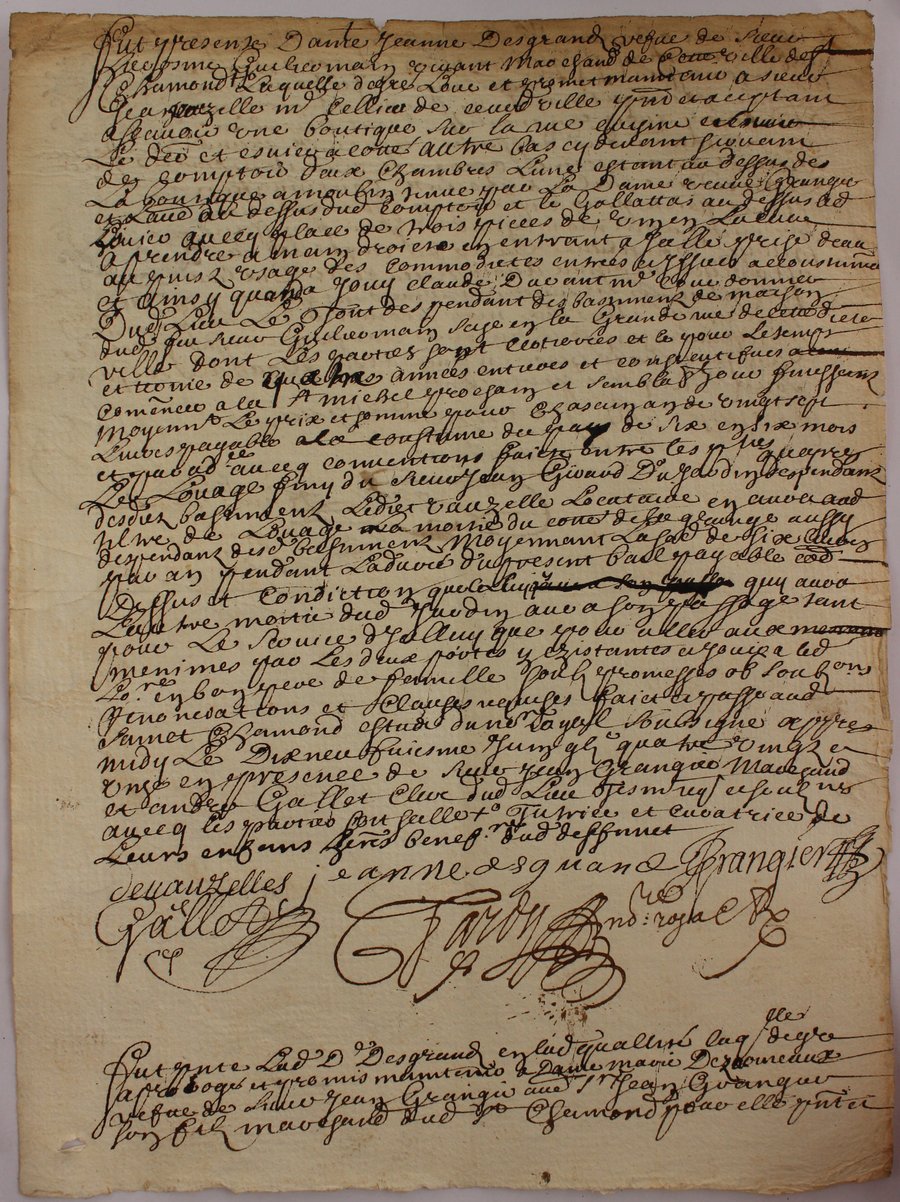 Fut presente Dame Jeanne Desgrand vefve de sieur
Guilleomain vivant Marchand de ceste ville de St
Chamond Laquelle de gre Loue et promet maintenir a sieur
Jean Vauzelle md Pellier de ceste ville pnt et acceptant
a scavoir une boutique sur la rue
Le devant et autre bas cy devant servant
de comptoir deux Chambres Lune estant au dessus de
La boutique a moubly tenue par La Dame veuve Grangier
et Lautre au dessus dud comptoir et le Gallattas au dessus ad
avecq place de trois pieces de vin en La cave
a prendre a main droicte en entrant a salle prise deau
au puis usage des commodietes entrees et yssues accoustumes
et ainsy quen a jouy claude Ducant md
Dud Lieu Le tout despendant des bastimens de maison
dud feu sieur Guilleomain size en la Grande rue de ceste dicte
ville dont Les parties sont et ce pour Le temps
et terme de quatre annees entieres et consequtifves a
comencer a la St Michel prochain et semblable jour finissant
Moyennt Le prix et somme pour chascun an de vingt sept
Livres payable a la coustume du pays de six en six mois
et par ad avecq conventions faite entre les ptyes quapres
Le Louage finy du sieur Jean Girard Du Jardin despendant
desdits bastimens Ledict Vauzelle Locataire en aura aud
tiltre de Louage La moitie du coste de grange aussy
despendant desd bastimens Moyennant La sode de six livres
par an pendant La duree du present bail payable comme
Dessus et condiction que quy aura
Lautre moitie dud Jardin aura son passage tant
pour Le service diceluy que pour aller aux
menimes par Les deux portes y existantes a jouir a led
Lore en bon pere de famille soubz promesses ob soubons
Renonciations et Clauses requises faict et passe aud
Sainct Chamond estude du nore royal soubsigne appres
midy Le Dixneufviesme Juin gbjc quatre vingt
unze en presence de sieur Jean Grangier Marchand
et andre Gallet Clerc dud Lieu Tesm req et soubnes
avecq les parties soit Tutrice et curatrice de
Leurs enfans herrs benefres dud deffunct
devauzelles jeanne desgrand JGrangier
Gallet Tardy nore royal
Fut pnte Lad De Desgrand en lad quallite laqlle de gre
a promis maintenir a Dame marie Dezormeaux
vefve de sieur Jean Grangier avec sr Jean Grangier
son filz marchand dud St Chamond pour elle pnt et